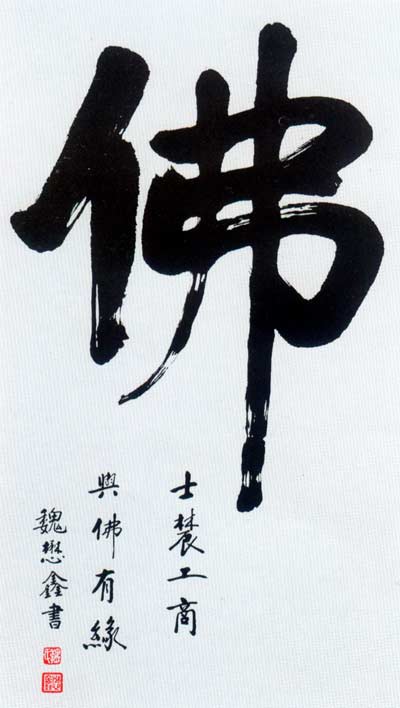 佛
士辳工商
與佛有緣
魏懋鑫書